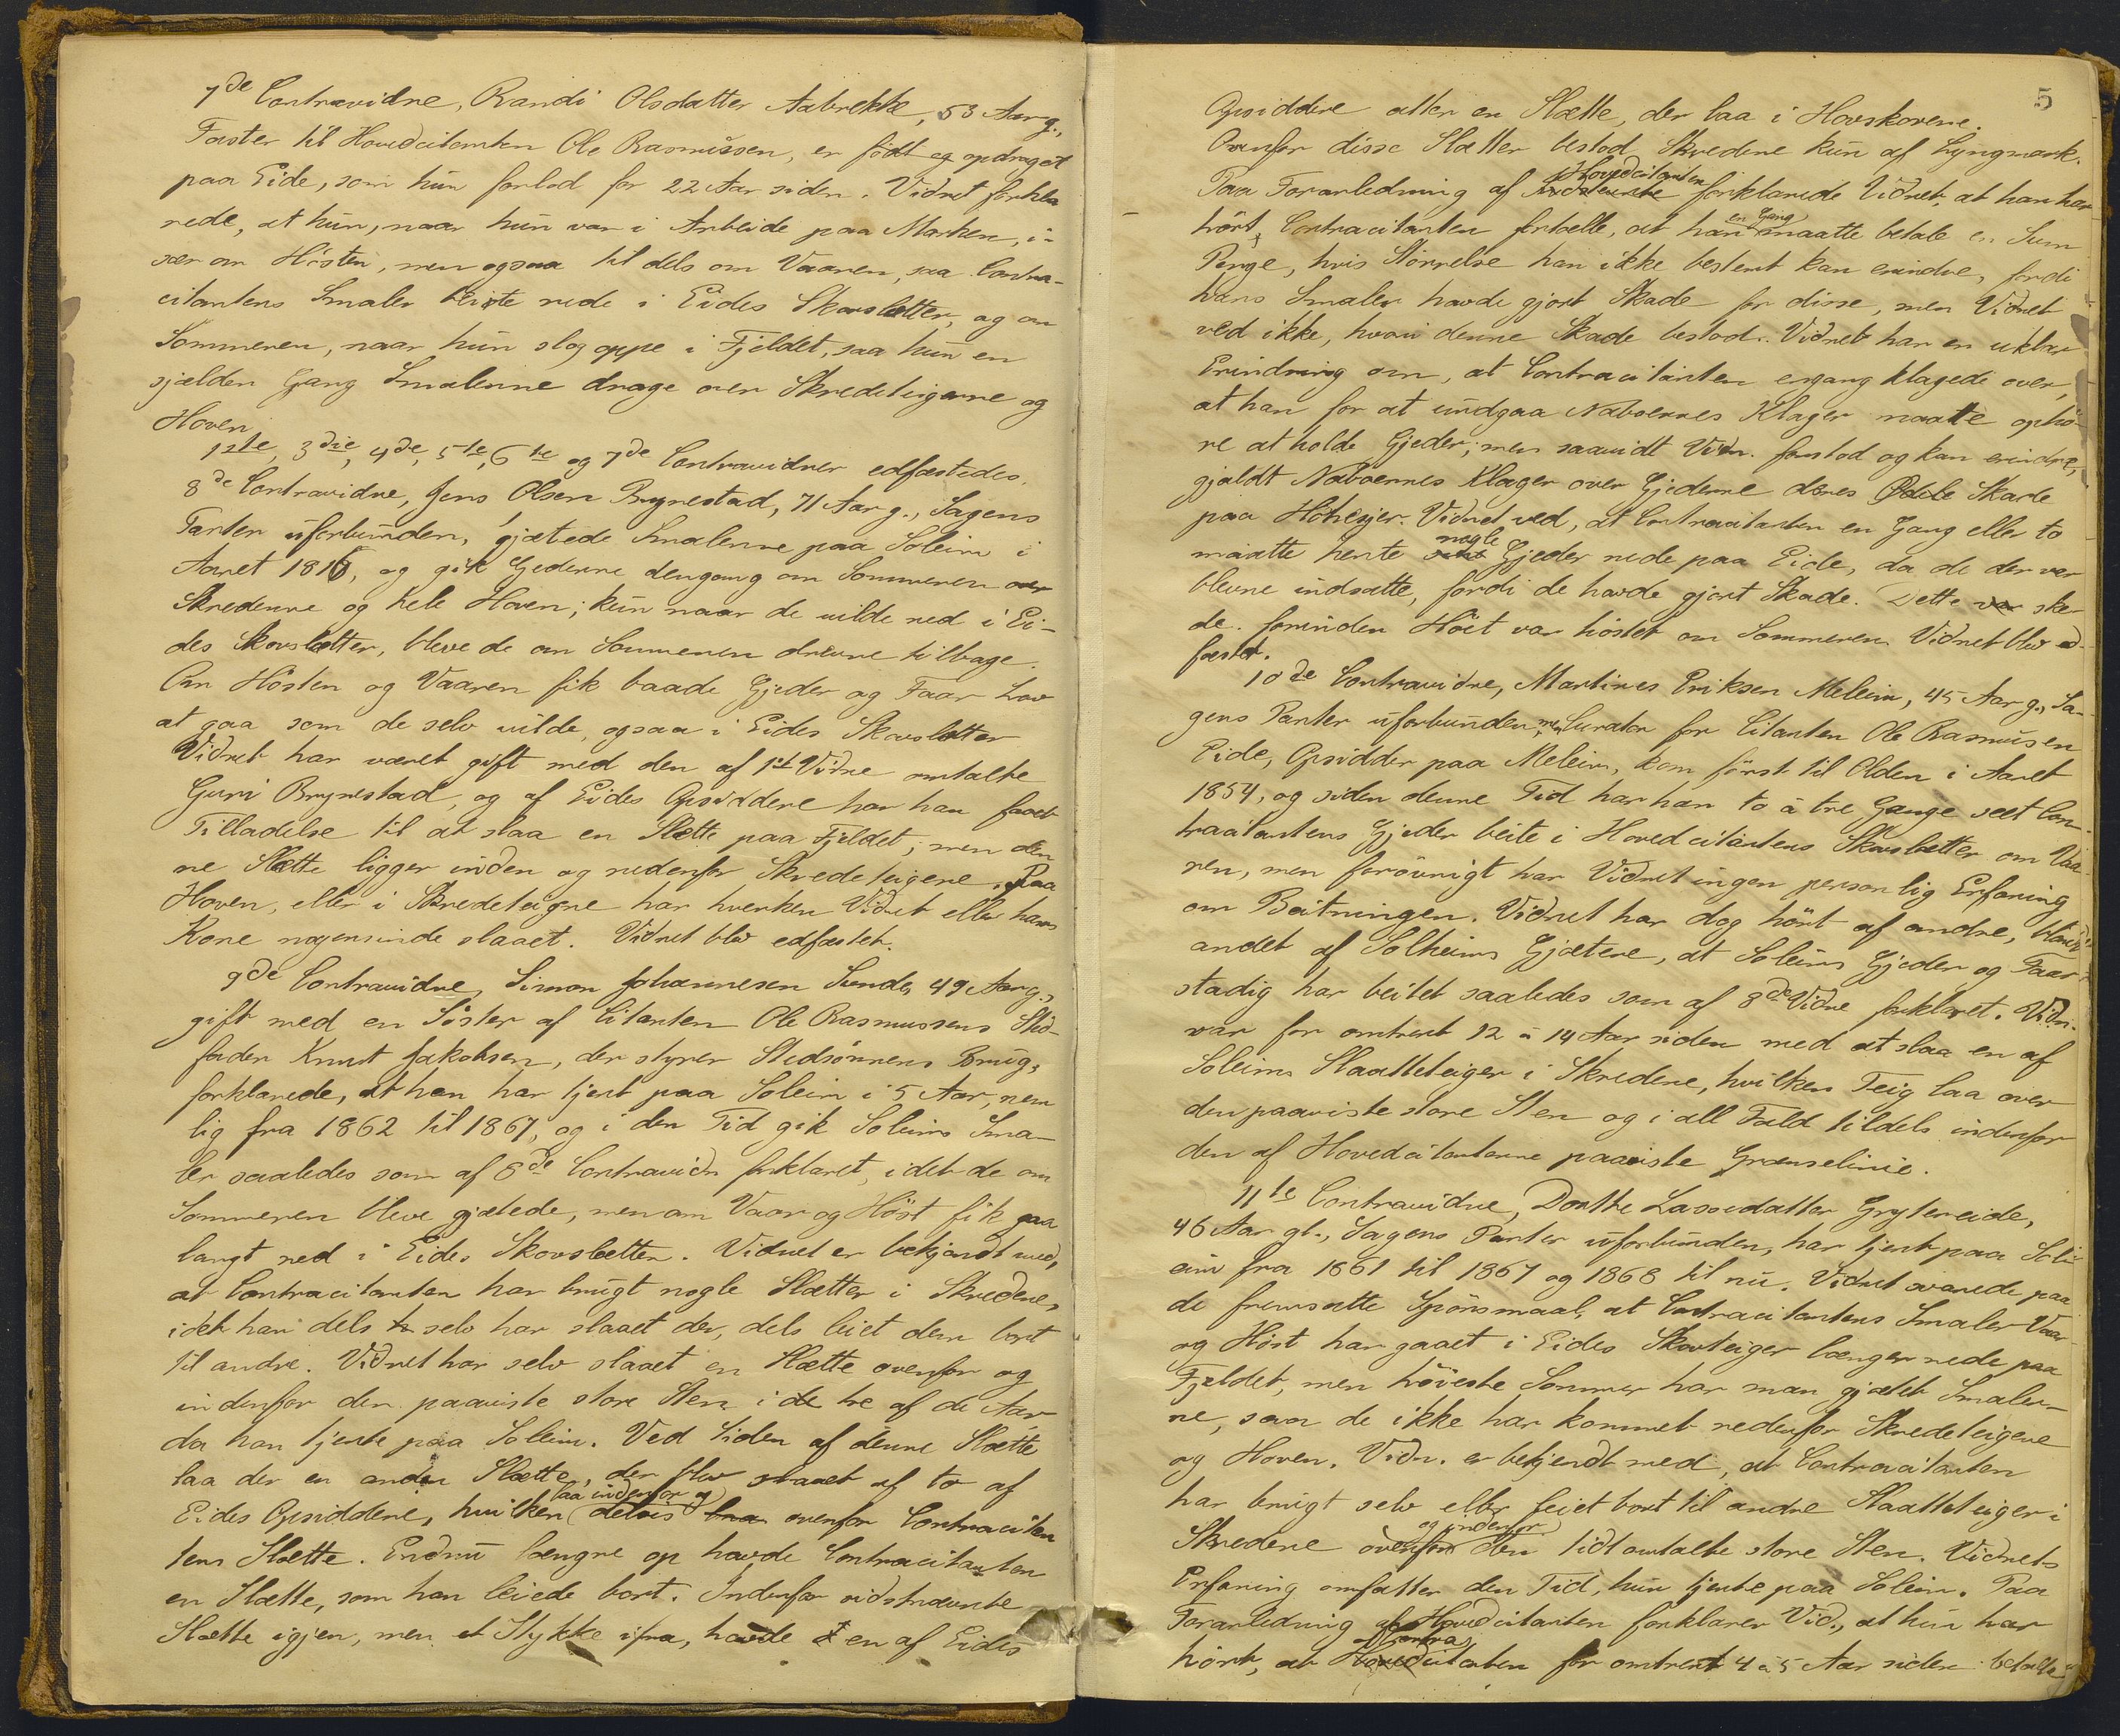 7de Contravidne, Randi Olsdatter Aabrekke, 53 Aar g.,
Faster til Hovedcitanten Ole Rasmussen, er født og opdraget
paa Eide, som hun forlod for 22 Aar siden. Vidnet forkla
rede, at hun, naar hun var i Arbeide paa Marken, i-
sær om Høsten, men ogsaa til dels om Vaaren, saa Contra-
citantens Smaler beiste nede i Eides Skovslætter, og om
Sommeren, naar hun slog oppe i Fjeldet, saa hun en
sjælden Gang Smalerne drage over Skredeteigerne og
Hoven.
1ste, 3die, 4de, 5te, 6te og 7de Contravidner edfæstedes.
8de Contravidne, Jens Olsen Brynestad, 71 Aar g., Sagens
Parter uforbunden, gjætede Smalerne paa Soleim i
Aaret 1816, og gik Gjederne dengang om Sommeren over
Skrederne og hele Hoven; kun naar de vilde ned i Ei-
des Skovslætter, bleve de om Sommeren drevne tilbage.
Om Høsten og Vaaren fik baade Gjeder og Faar Lov
at gaa som de selv vilde, ogsaa i Eides Skovslætter
Vidnet har været gift med den af 1ste Vidne omtalte
Guri Brynestad, og af Eides Opsiddere har han faaet
Tilladelse til at slaa en Slætte paa Fjeldet; men den
ne Slætte ligger inden og nedenfor Skredeteigene. Paa
Hoven, eller i Skredeteigne har hverken Vidnet eller hans
Kone nogensinde slaaet. Vidnet blev edfæstet.
9de Contravidne, Simon Johannesen Sunde, 49 Aar g.,
gift med en Søster af Citanten Ole Rasmussens Sted-
fader Knut Jakobsen, der styrer Stedsønnens Brug,
forklarede, at han har tjent paa Soleim i 5 Aar, nem
lig fra 1862 til 1867, og i den Tid gik Soleims Sma-
ler saaledes som af 8de Contravidn forklaret, idet de om
Sommeren bleve gjætede, men om Vaar og Høst fik gaa
langt ned i Eides Skovslætter. Vidnet er bekjendt med,
at Contracitanten har brugt nogle Slætter i Skredene,
idet han dels selv har slaaet der, dels leiet dem bort
til andre. Vidnet har selv slaaet en Slætte ovenfor og
indenfor den paaviste store Sten i de tre af de Aar
da han tjente paa Soleim. Ved Siden af denne Slætte
laa der en anden Slætte, der blev slaaet af to af
Eides Opsiddere, hvilken laa indenfor og delvis ovenfor Contraciten
tens Slætte. Endnu længre op havde Contracitanten
en Slætte, som han leiede bort. Indenfor sidstnævnte
Slætte igjen, men et Stykke ifra, havde en af Eides
5
Opsiddere atter en Slætte, der laa i Hovskovene.
Ovenfor disse Slætter bestod Skredene kun af Lyngmark.
Paa Foranledning af Hovedcitanten forklarede Vidnet, at han har
hørt Contracitanten fortælle, at han en Gang maatte betale en Sum
Penge, hvis Størrelse han ikke bestemt kan erindre, fordi
hans Smaler havde gjort Skade for disse, men Vidnet
ved ikke, hvori denne Skade bestod. Vidnet har en uklar
Erindring om, at Contracitanten engang klagede over,
at han for at undgaa Naboernes Klager maatte ophø-
re at holde Gjeder; men saavidt Vidn. forstod og kan erindre,
gjaldt Naboernes Klager over Gjederne deres Skade
paa Höhesjer. Vidnet ved, at Contracitanten en Gang eller to
maatte hente nogle Gjeder nede paa Eide, da de der var
blevne indsatte, fordi de havde gjort Skade. Dette ske
de. forinden Höet var höstet om Sommeren. Vidnet blev ed-
fæstet.
10de Contravidne, Martines Eriksen Meleim, 45 Aar g., Sa-
gens Parter uforbunden, men Curator for Citanten Ole Rasmusen
Eide, Opsidder paa Meleim, kom först til Olden i Aaret
1854, og siden denne Tid har han to à tre Gange seet Con-
tracitantens Gjeder beite i Hovedcitantens Skovslætter om Vaa-
ren, men forövrigt har Vidnet ingen personlig Erfaring
om Beitningen. Vidnet har dog hört af andre, blandt
andet af Solheims Gjætere, at Soleims Gjeder og Faar
stadig har beitet saaledes som af 8de Vidne forklaret. Vidn.
var for omtrent 12 à 14 Aar siden med at slaa en af
Soleims Slaatteteiger i Skredene, hvilken Teig laa over
den paaviste store Sten og i all Fald tildels indenfor
den af Hovedcitanterne paaviste Grænselinie.
11te Contravidne, Dorthe Lassedatter Grytereide,
46 Aar gl., Sagens Parter uforbunden, har tjent paa Sol-
eim fra 1861 til 1867 og 1868 til nu. Vidnet svarede paa
de fremsatte Spörsmaal, at Contracitantens Smaler Vaar
og Höst har gaaet i Eides Skovteiger længer nede paa
Fjeldet, men höieste Sommer har man gjætet Smaler-
ne, saa de ikke har kommet nedenfor Skredeteigene
og Hoven. Vidn. er bekjendt med, at Contracitanten
har brugt selv eller leiet bort til andre Slaatteteiger i
Skredene ovenfor og indenfor den tidtomtalte store Sten. Vidnets
Erfaring omfatter den Tid, hun tjente paa Soleim. Paa
Foranledning af Hovedcitanten forklarer Vid., at hun har
hört, at Contracitanten for omtrent 4 à 5 Aar siden betalte